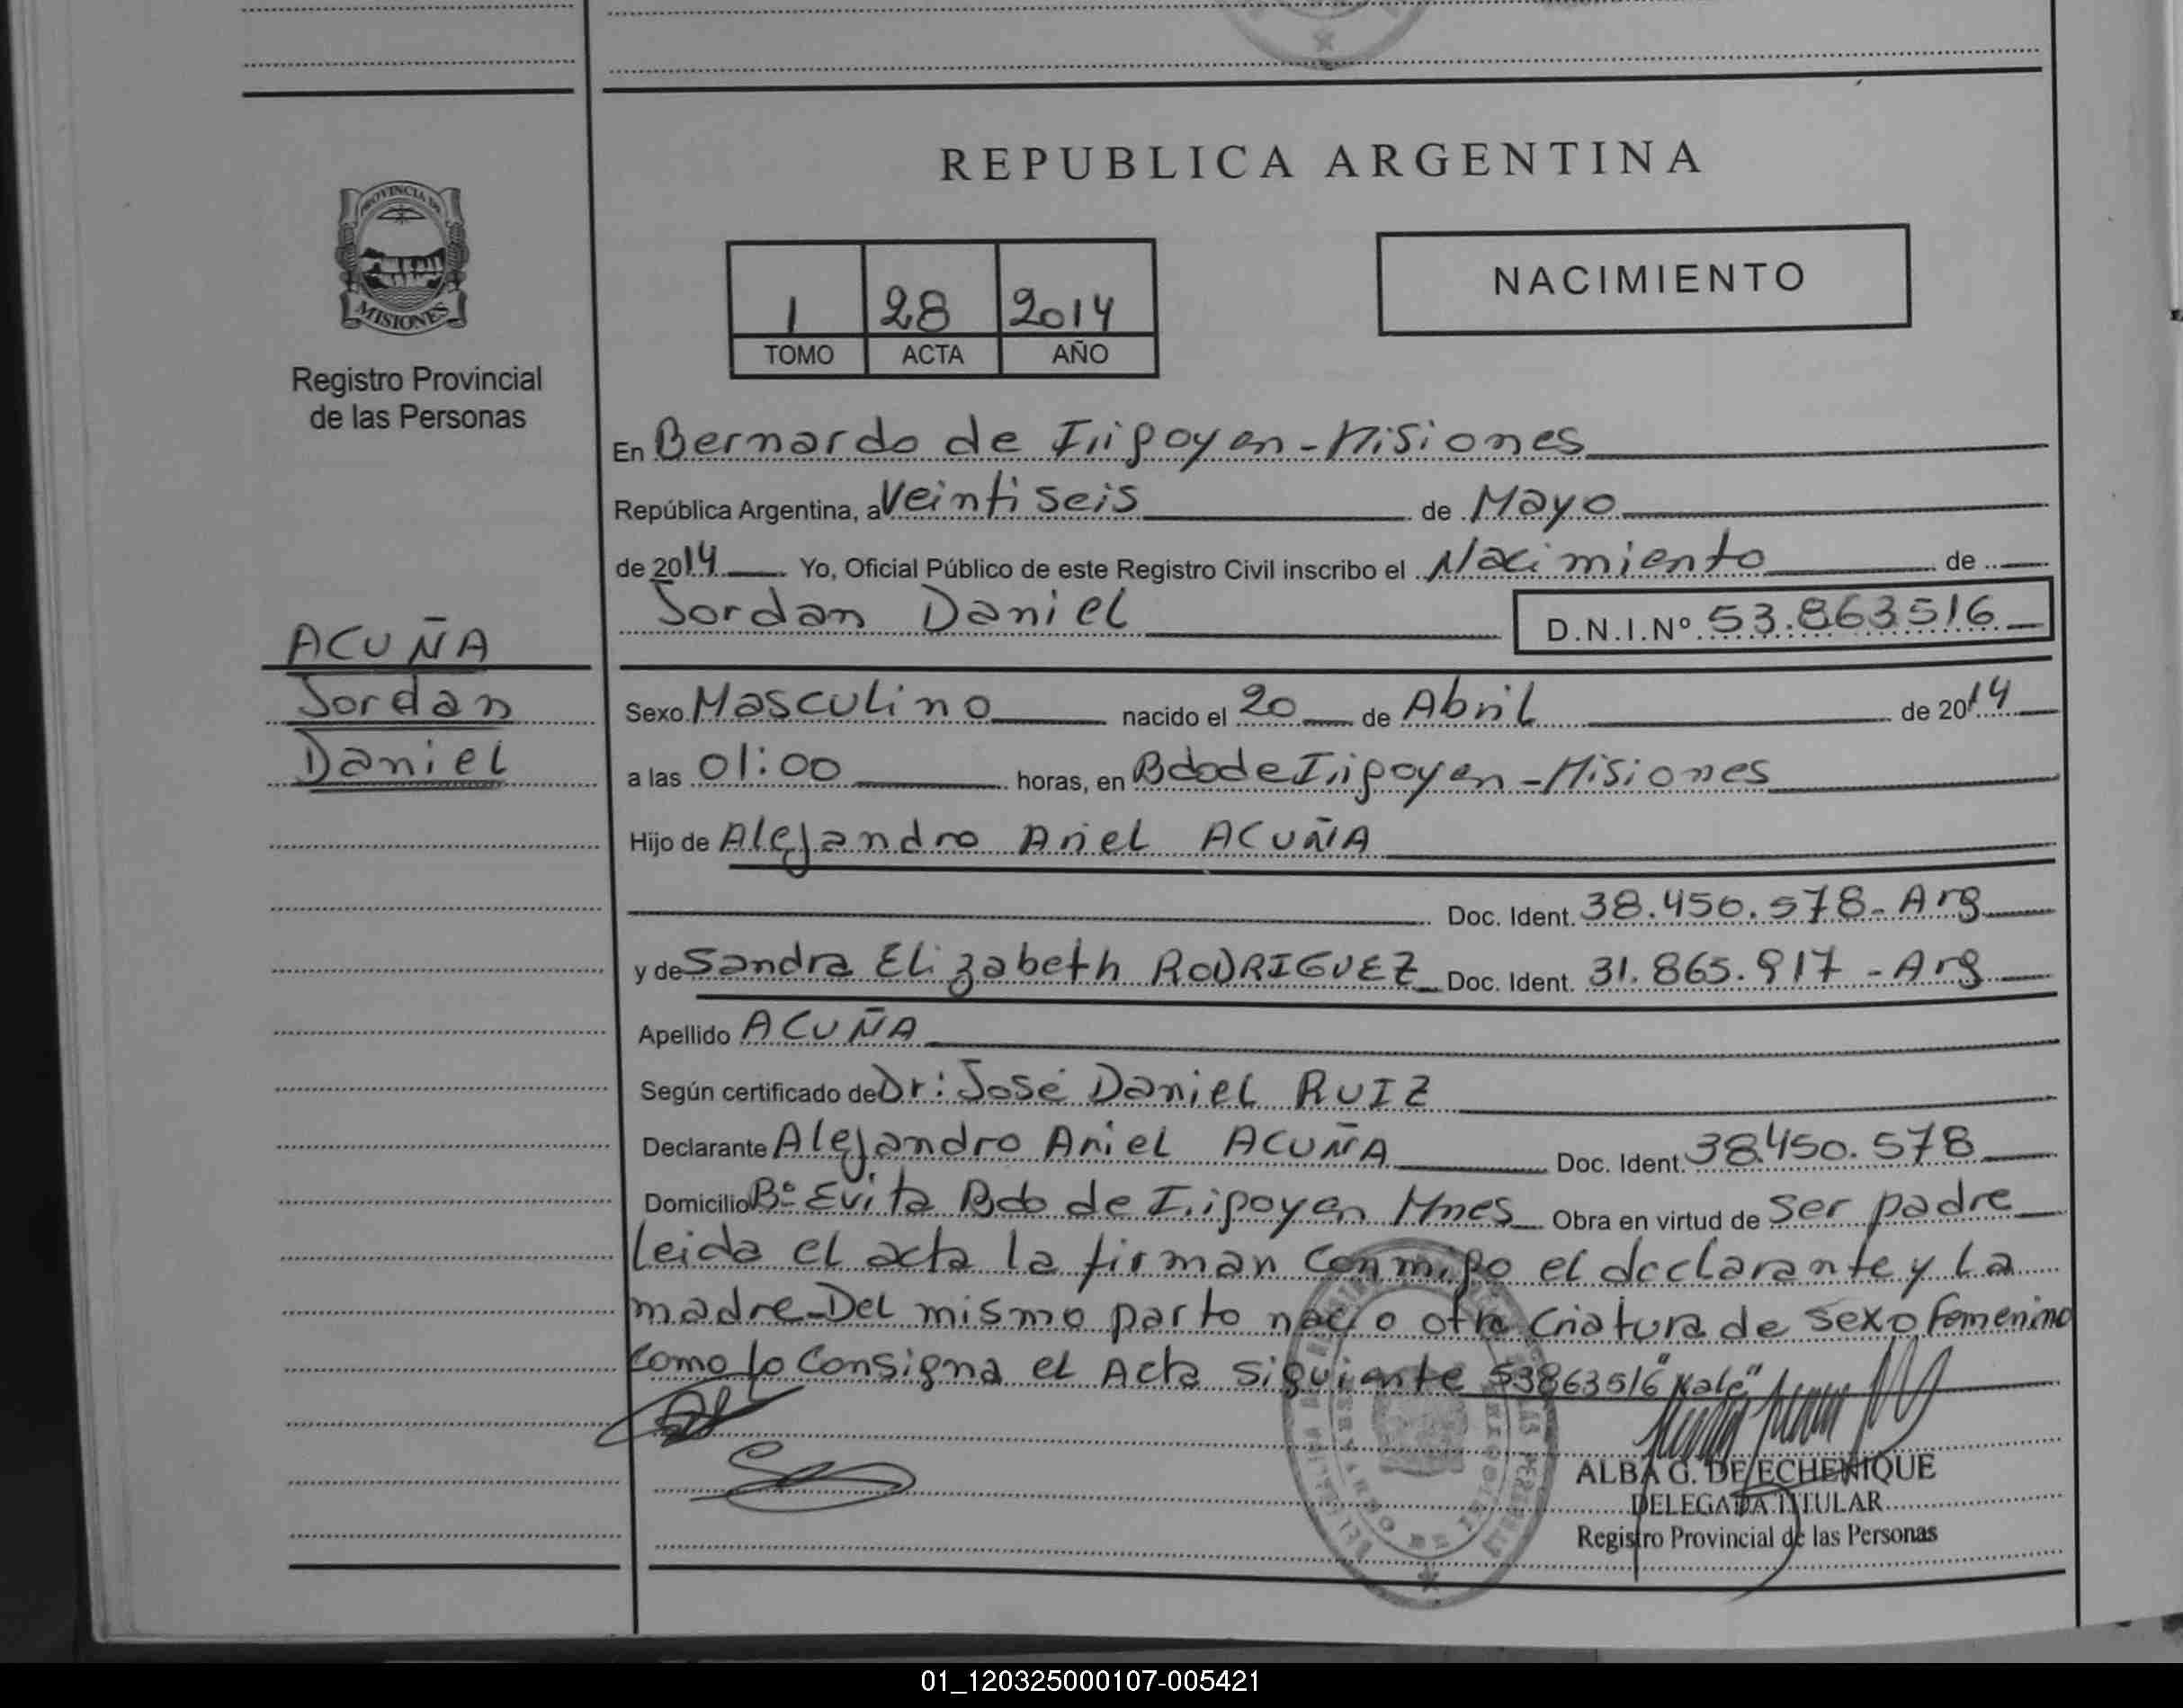 REPUBLICA ARGENTINA
PROVINCIA DE
MISIONES
Registro Provincial
de las Personas
1 28 2014
TOMO ACTA AÑO
NACIMIENTO
En Bernardo de Irigoyen - Misiones
República Argentina, a Veintiseis de Mayo
de 2014 Yo, Oficial Público de este Registro Civil inscribo el Nacimiento de
Jordan Daniel D.N.I.Nº 53.863516
ACUÑA
Jordan
Daniel
Sexo Masculino nacido el 20 de Abril de 2014
a las 01:00 horas, en Bdo de Irigoyen - Misiones
Hijo de Alejandro Ariel ACUÑA
Doc. Ident. 38.450.578 - Arg
y de Sandra Elizabeth RODRIGUEZ Doc. Ident. 31.865.917 - Arg
Apellido ACUÑA
Según certificado de Dr: José Daniel RUIZ
Declarante Alejandro Ariel ACUÑA Doc. Ident. 38450.578
Domicilio Bº Evita Bdo de Irigoyen Mnes Obra en virtud de ser padre
leida el acta la firman conmigo el declarante y la
madre - Del mismo parto nacio otra criatura de sexo femenino
como lo consigna el Acta siguiente 53863516 "Vale"
ALBA G. DE ECHENIQUE
DELEGADA TITULAR
Registro Provincial de las Personas
01_120325000107-005421